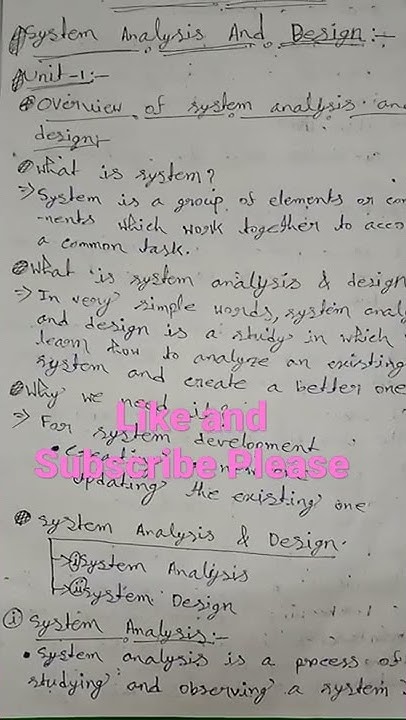 System Analysis And Design:-
Unit-1:-
Overview of system analysis an
design:-
What is system?
⇒ System is a group of elements or com
-nents which work together to acco
a common task.
What is system analysis & design
⇒ In very simple words, system analy
and design is a study in which
learn how to analyze an existing
system and create a better one
Why we need it?
⇒ For system development
Like and
Subscribe Please
updating the existing one
System Analysis & Design.
→ i) System Analysis
→ ii) System Design
(i) System Analysis:-
• System analysis is a process of
studying and observing a system